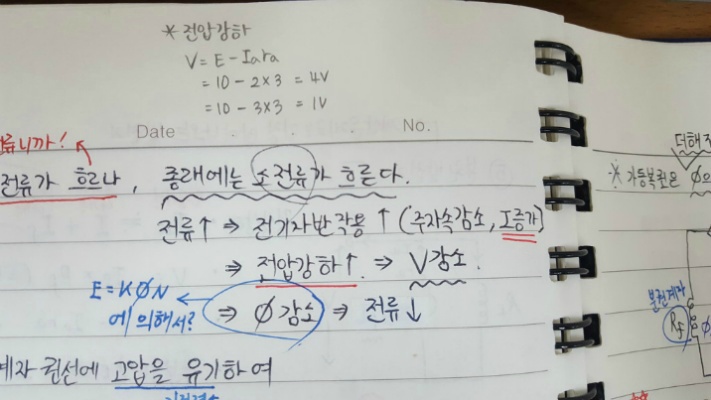 * 전압강하
V = E - Iara
= 10 - 2×3 = 4V
= 10 - 3×3 = 1V
Date . . No.
류니까!
전류가 흐르나, 종래에는 소전류가 흐른다.
전류↑ ⇒ 전기자반작용↑ (주자속감소, I증가)
⇒ 전압강하↑ ⇒ V감소.
E = KØN
에 의해서?
⇒ Ø감소 ⇒ 전류↓
계자 권선에 고압을 유기하여
더해져
* 가동복권은 Ø으
분권계자
Rf